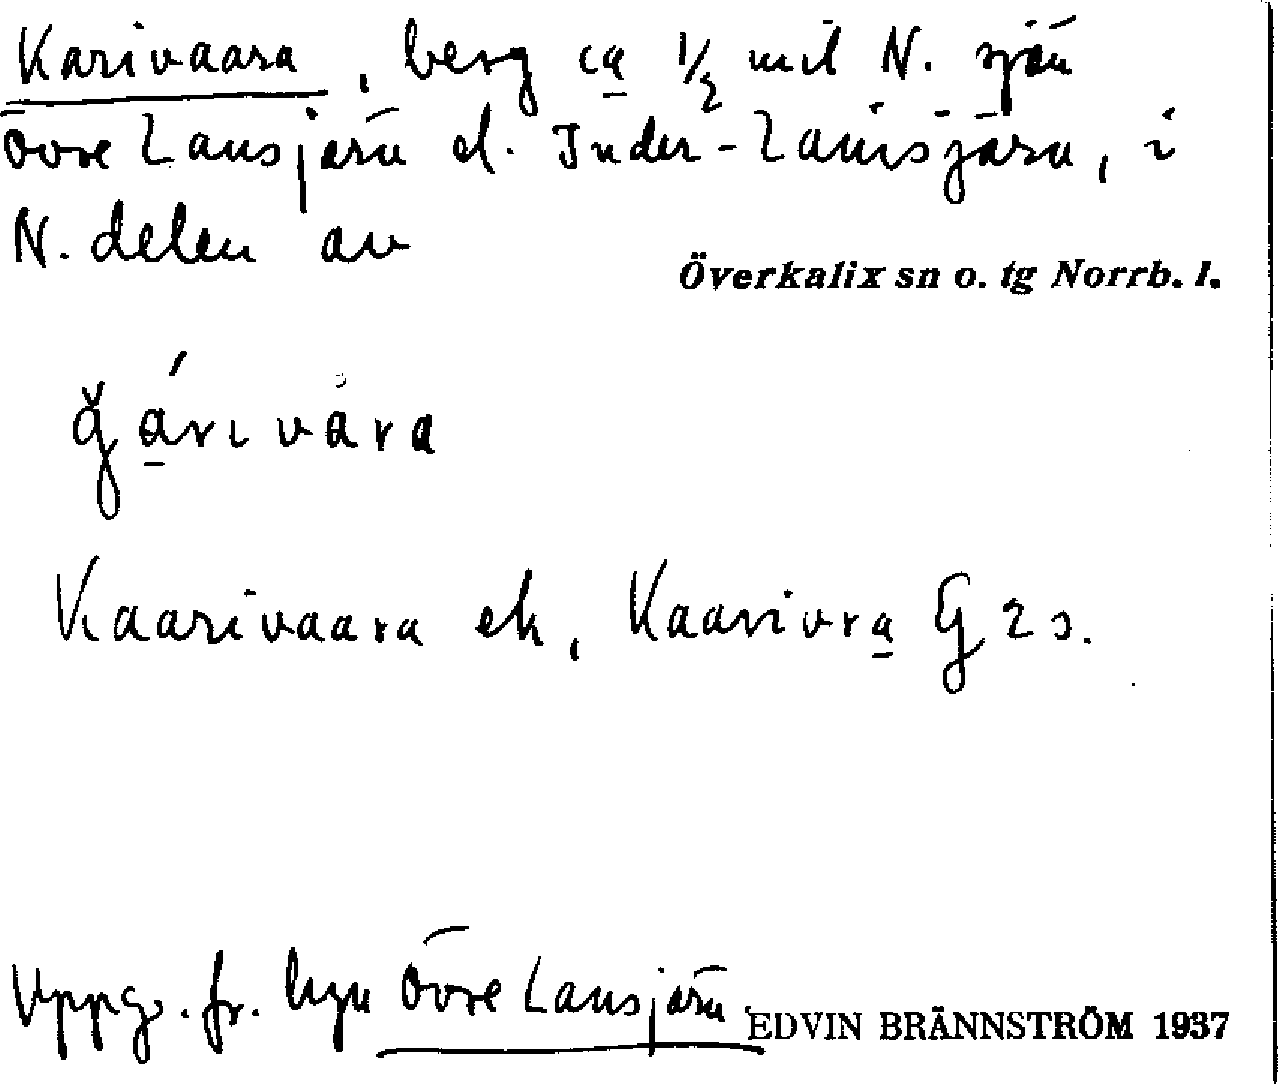 Karivaara, berg ca 1/2 mil N. sjön
Övre Lansjärv el. Inder-Lainsjärv, i
N. delen av
Överkalix sn o. tg Norrb. l.
Kaarivaara ek, Kaarivra G 2 s.
Uppg. fr. byn Övre Lansjärv
EDVIN BRÄNNSTRÖM 1937